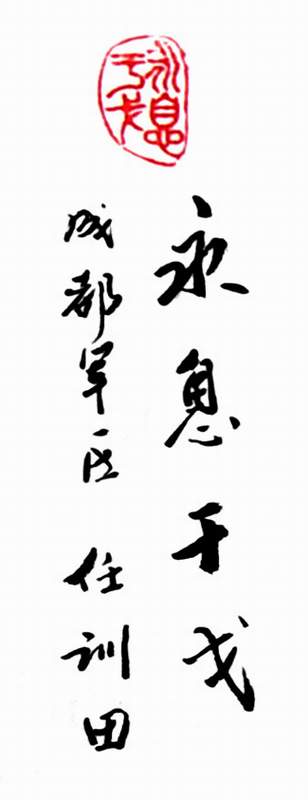 永息干戈
永息干戈
成都军区 任训田